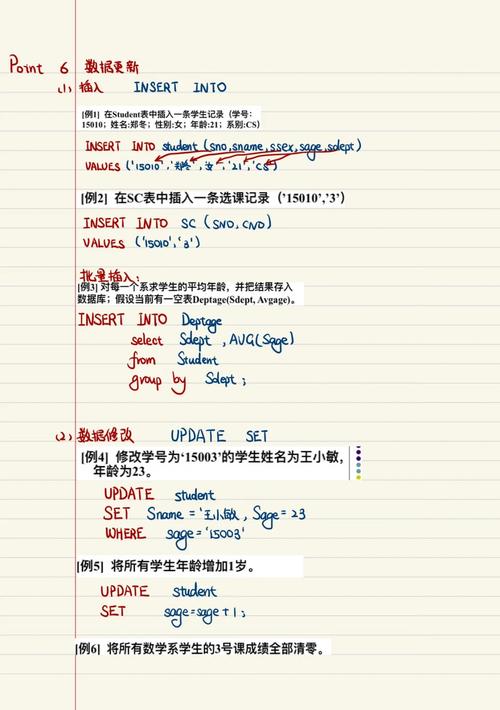 Point 6 数据更新
(1) 插入 INSERT INTO
[例1] 在Student表中插入一条学生记录（学号：
15010；姓名:郑冬；性别:女；年龄:21；系别:CS）
INSERT INTO student (sno,sname,ssex,sage,sdept)
VALUES ('15010','郑冬','女','21','CS')
[例2] 在SC表中插入一条选课记录（'15010','3'）
INSERT INTO SC (SNO, CNO)
VALUES ('15010','3')
批量插入：
[例3] 对每一个系求学生的平均年龄，并把结果存入
数据库；假设当前有一空表Deptage(Sdept, Avgage)。
INSERT INTO Deptage
select Sdept , AVG(Sage)
from Student
group by Sdept ;
(2) 数据修改 UPDATE SET
[例4] 修改学号为‘15003’的学生姓名为王小敏，
年龄为23。
UPDATE student
SET Sname = '王小敏 , Sage = 23
WHERE sage='15003'
[例5] 将所有学生年龄增加1岁。
UPDATE student
SET sage=sage+1 ;
[例6] 将所有数学系学生的3号课成绩全部清零。